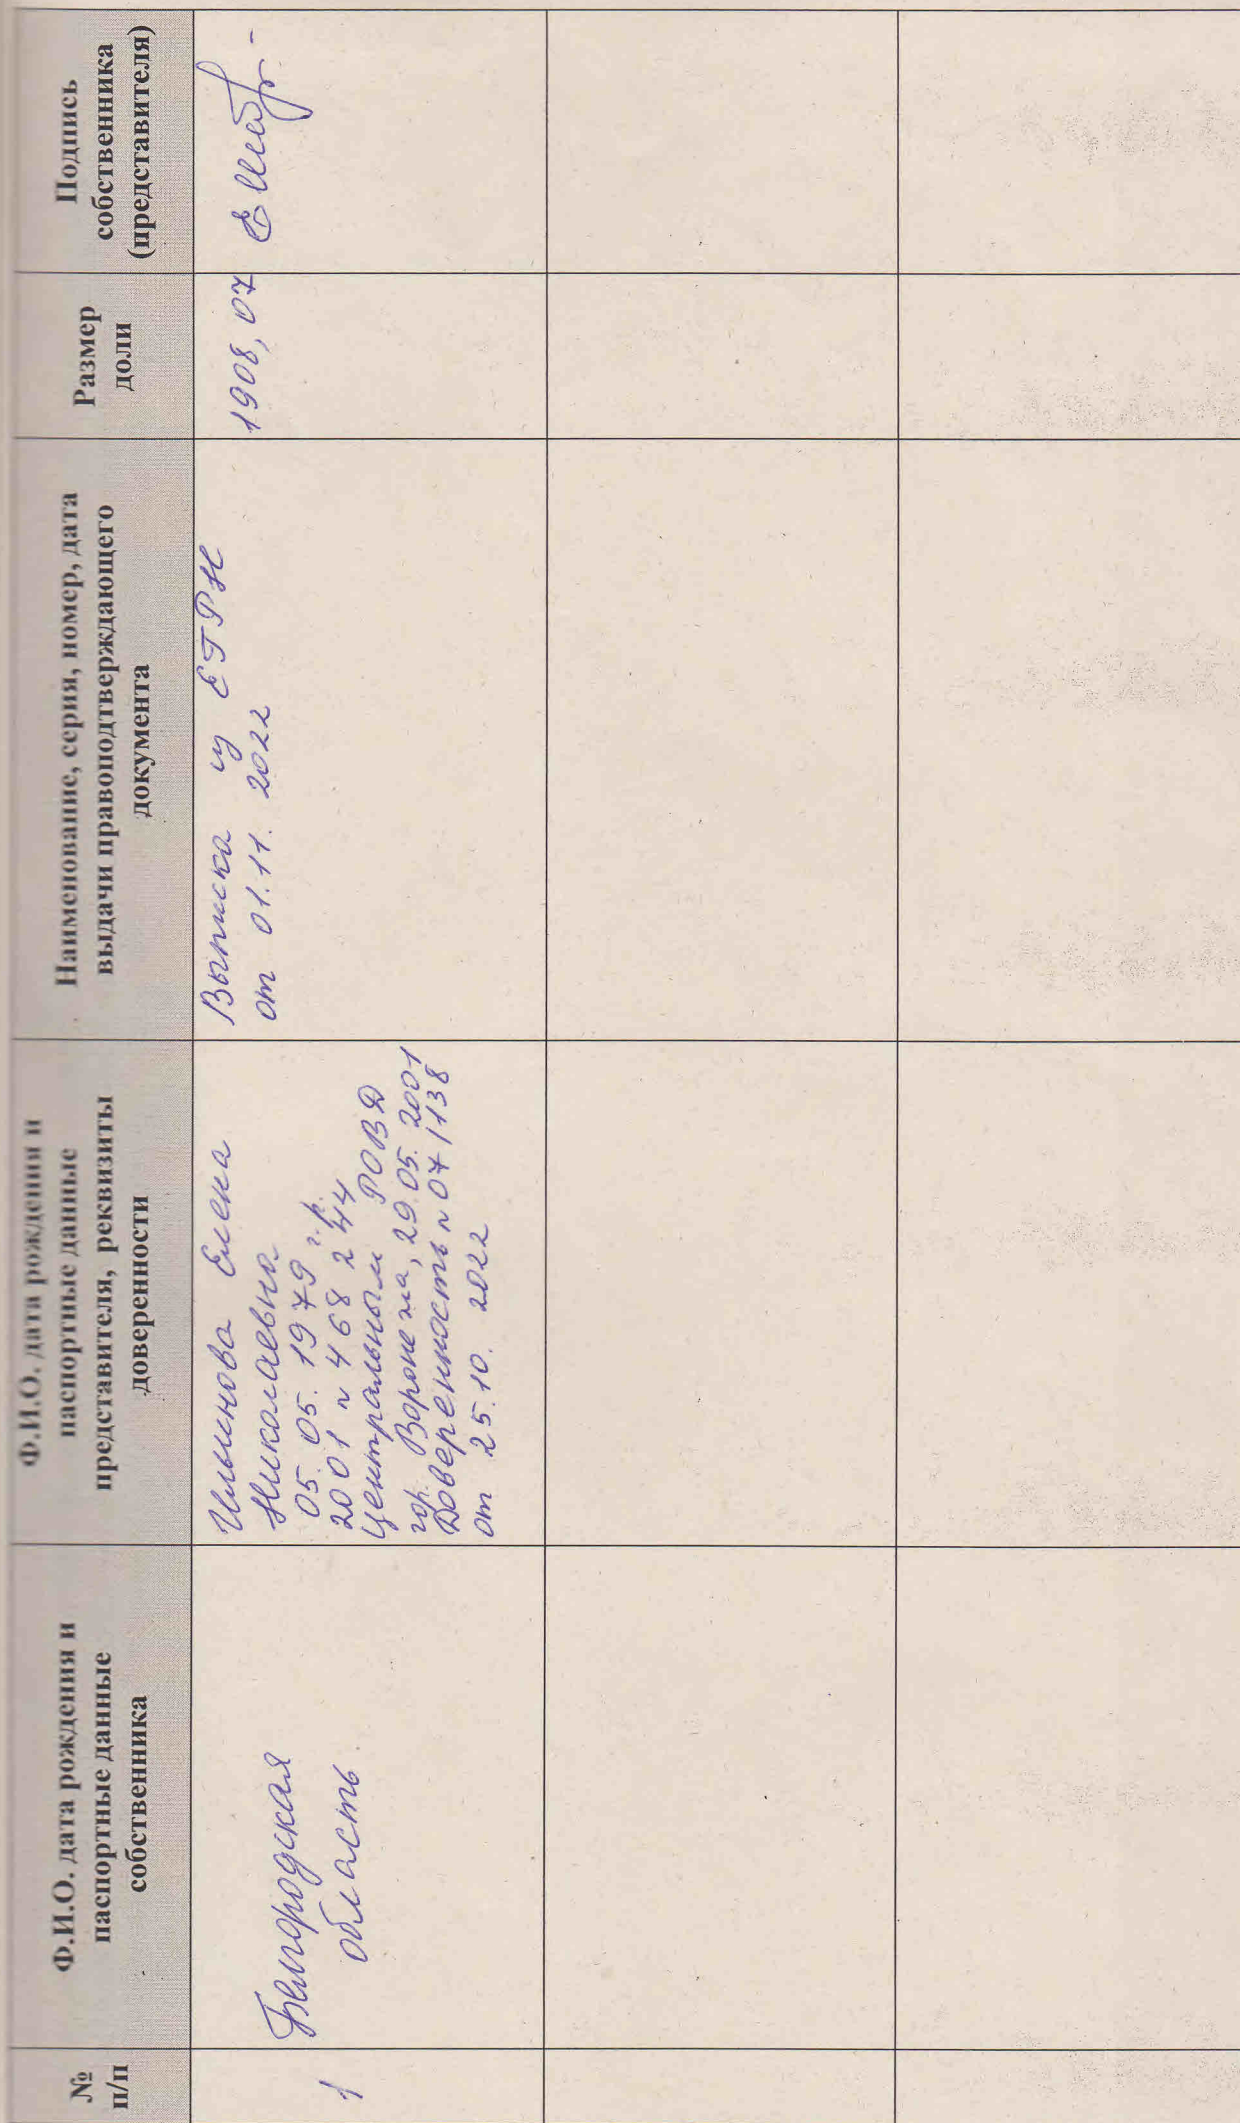 №
п/п
Ф.И.О. дата рождения и
паспортные данные
собственника
Ф.И.О. дата рождения и
паспортные данные
представителя, реквизиты
доверенности
Наименование, серия, номер, дата
выдачи правоподтверждающего
документа
Размер
доли
Подпись
собственника
(представителя)
1
Белгородская
область
Елена
Николаевна
05.05.1979 г.р.
2001 № 468244
Центральным РОВД
гор. Воронежа, 29.05.2001
Доверенность № 07/138
от 25.10.2022
Выписка из ЕГРН
от 01.11.2022
1908,07